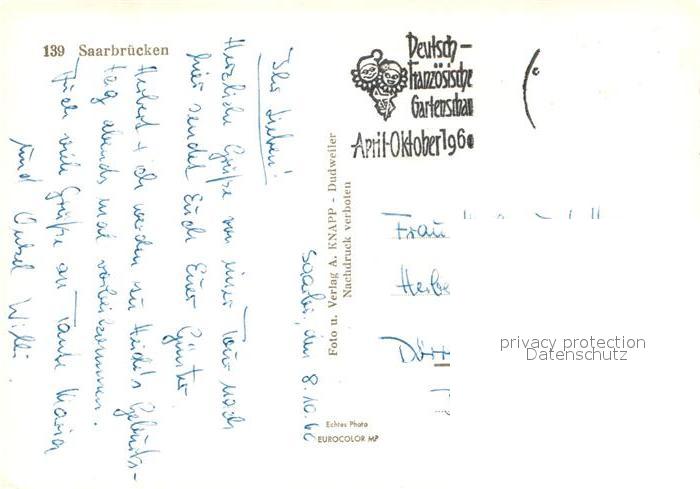 139 Saarbrücken
Saarbr., den 8.10.60
Ihr Lieben!
Herzliche Grüße von einer Tour nach
hier sendet Euch Euer
Günter.
Herbert + ich werden zu Heidi's Geburts-
tag abends mal vorbeikommen.
Für viele Grüße an Tante Maria
und Onkel Willi.
Foto u. Verlag A. KNAPP - Dudweiler
Nachdruck verboten
Echtes Photo
EUROCOLOR MP
Deutsch-
Französische
Gartenschau
April-Oktober 1960
Frau
privacy protection
Datenschutz